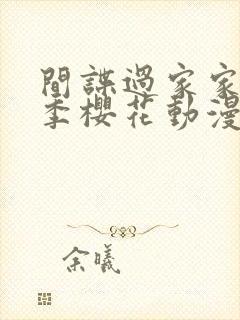 間諜過家家
季櫻花動漫
余曦